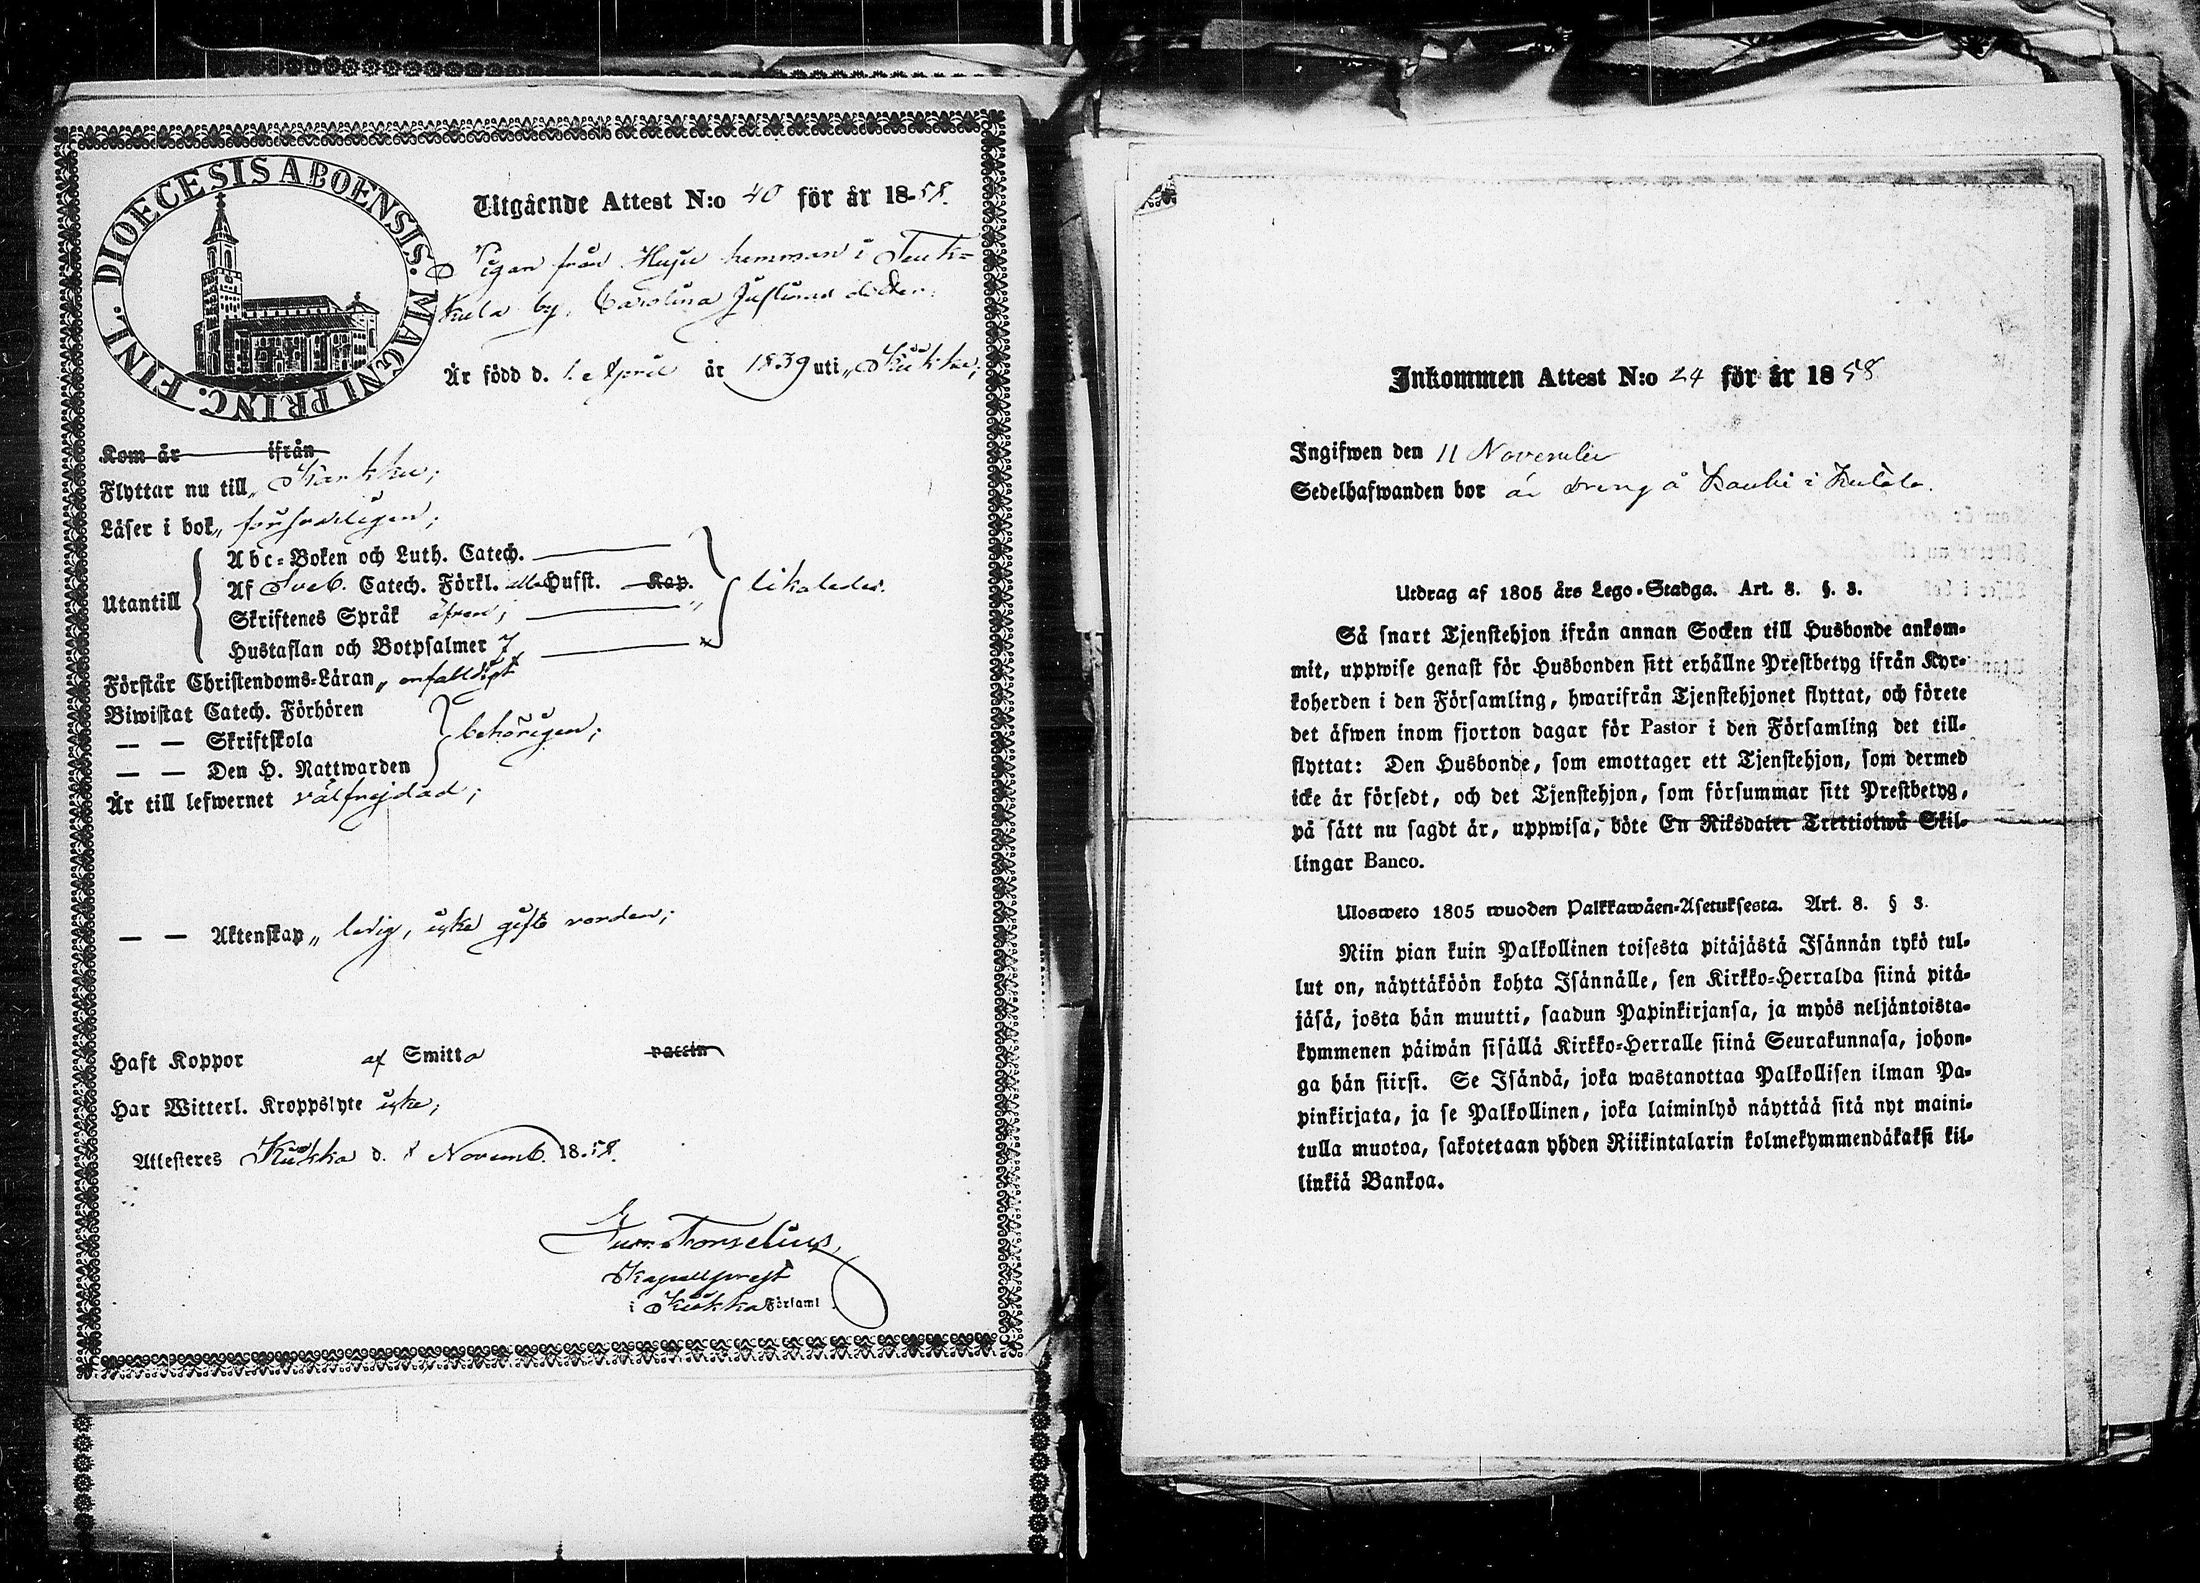 DIOECESIS ABOENSIS. MAGNI PRINC. FINL.
Utgående Attest N:o 40 för år 1858.
Pigan från Huju hemman i Tuk=
kula by, Carolina Justina dotter.
Är född d. 1. April år 1839 uti Kiikka,
Kom år ifrån
Flyttar nu till Karkku;
Läser i bok försvarligen;
Utantill
Abc=Boken och Luth. Catech.
Af Sveb. Catech. Förkl. alla Hufst. Kap.
Skriftenes Språk äfven;
Hustaflan och Botpsalmer 7
likaledes.
Förstår Christendoms=Läran enfaldigt
Biwistat Catech. Förhören
— — Skriftskola
— — Den H. Nattwarden
behörigen;
Är till lefwernet välfrejdad;
— — Äktenskap ledig, icke gift vorden;
Haft Koppor af Smitta vaccin
Har Witterl. Kroppslyte icke,
Attesteres Kiikka d. 8 Novemb. 1858.
Forselius,
Kapellprest
i Kiikka Församl.
Inkommen Attest N:o 24 för år 1858
Ingifwen den 11 November
Sedelhafwanden bor är dreng å i
Utdrag af 1805 års Lego=Stadga. Art. 8. §. 3.
Så snart Tjenstehjon ifrån annan Socken till Husbonde ankom=
mit, uppwise genast för Husbonden sitt erhållne Prestbetyg ifrån Kyr=
koherden i den Församling, hwarifrån Tjenstehjonet flyttat, och förete
det äfwen inom fjorton dagar för Pastor i den Församling det till=
flyttat: Den Husbonde, som emottager ett Tjenstehjon, som dermed
icke är försedt, och det Tjenstehjon, som försummar sitt Prestbetyg,
på sätt nu sagdt är, uppwisa, böte En Riksdaler Trettiotwå Skil=
lingar Banco.
Ulosweto 1805 wuoden Palkkawäen=Asetuksesta. Art. 8. § 3.
Niin pian kuin Palkollinen toisesta pitäjästä Isännän tykö tul=
lut on, näyttäköön kohta Isännälle, sen Kirkko=Herralda siinä pitä=
jäsä, josta hän muutti, saadun Papinkirjansa, ja myös neljäntoista=
kymmenen päiwän sisällä Kirkko=Herralle siinä Seurakunnasa, johon=
ga hän siirsi. Se Isändä, joka wastanottaa Palkollisen ilman Pa=
pinkirjata, ja se Palkollinen, joka laiminlyö näyttää sitä nyt maini=
tulla muotoa, sakotetaan yhden Riikintalarin kolmekymmendäkaksi kil=
linkiä Bankoa.